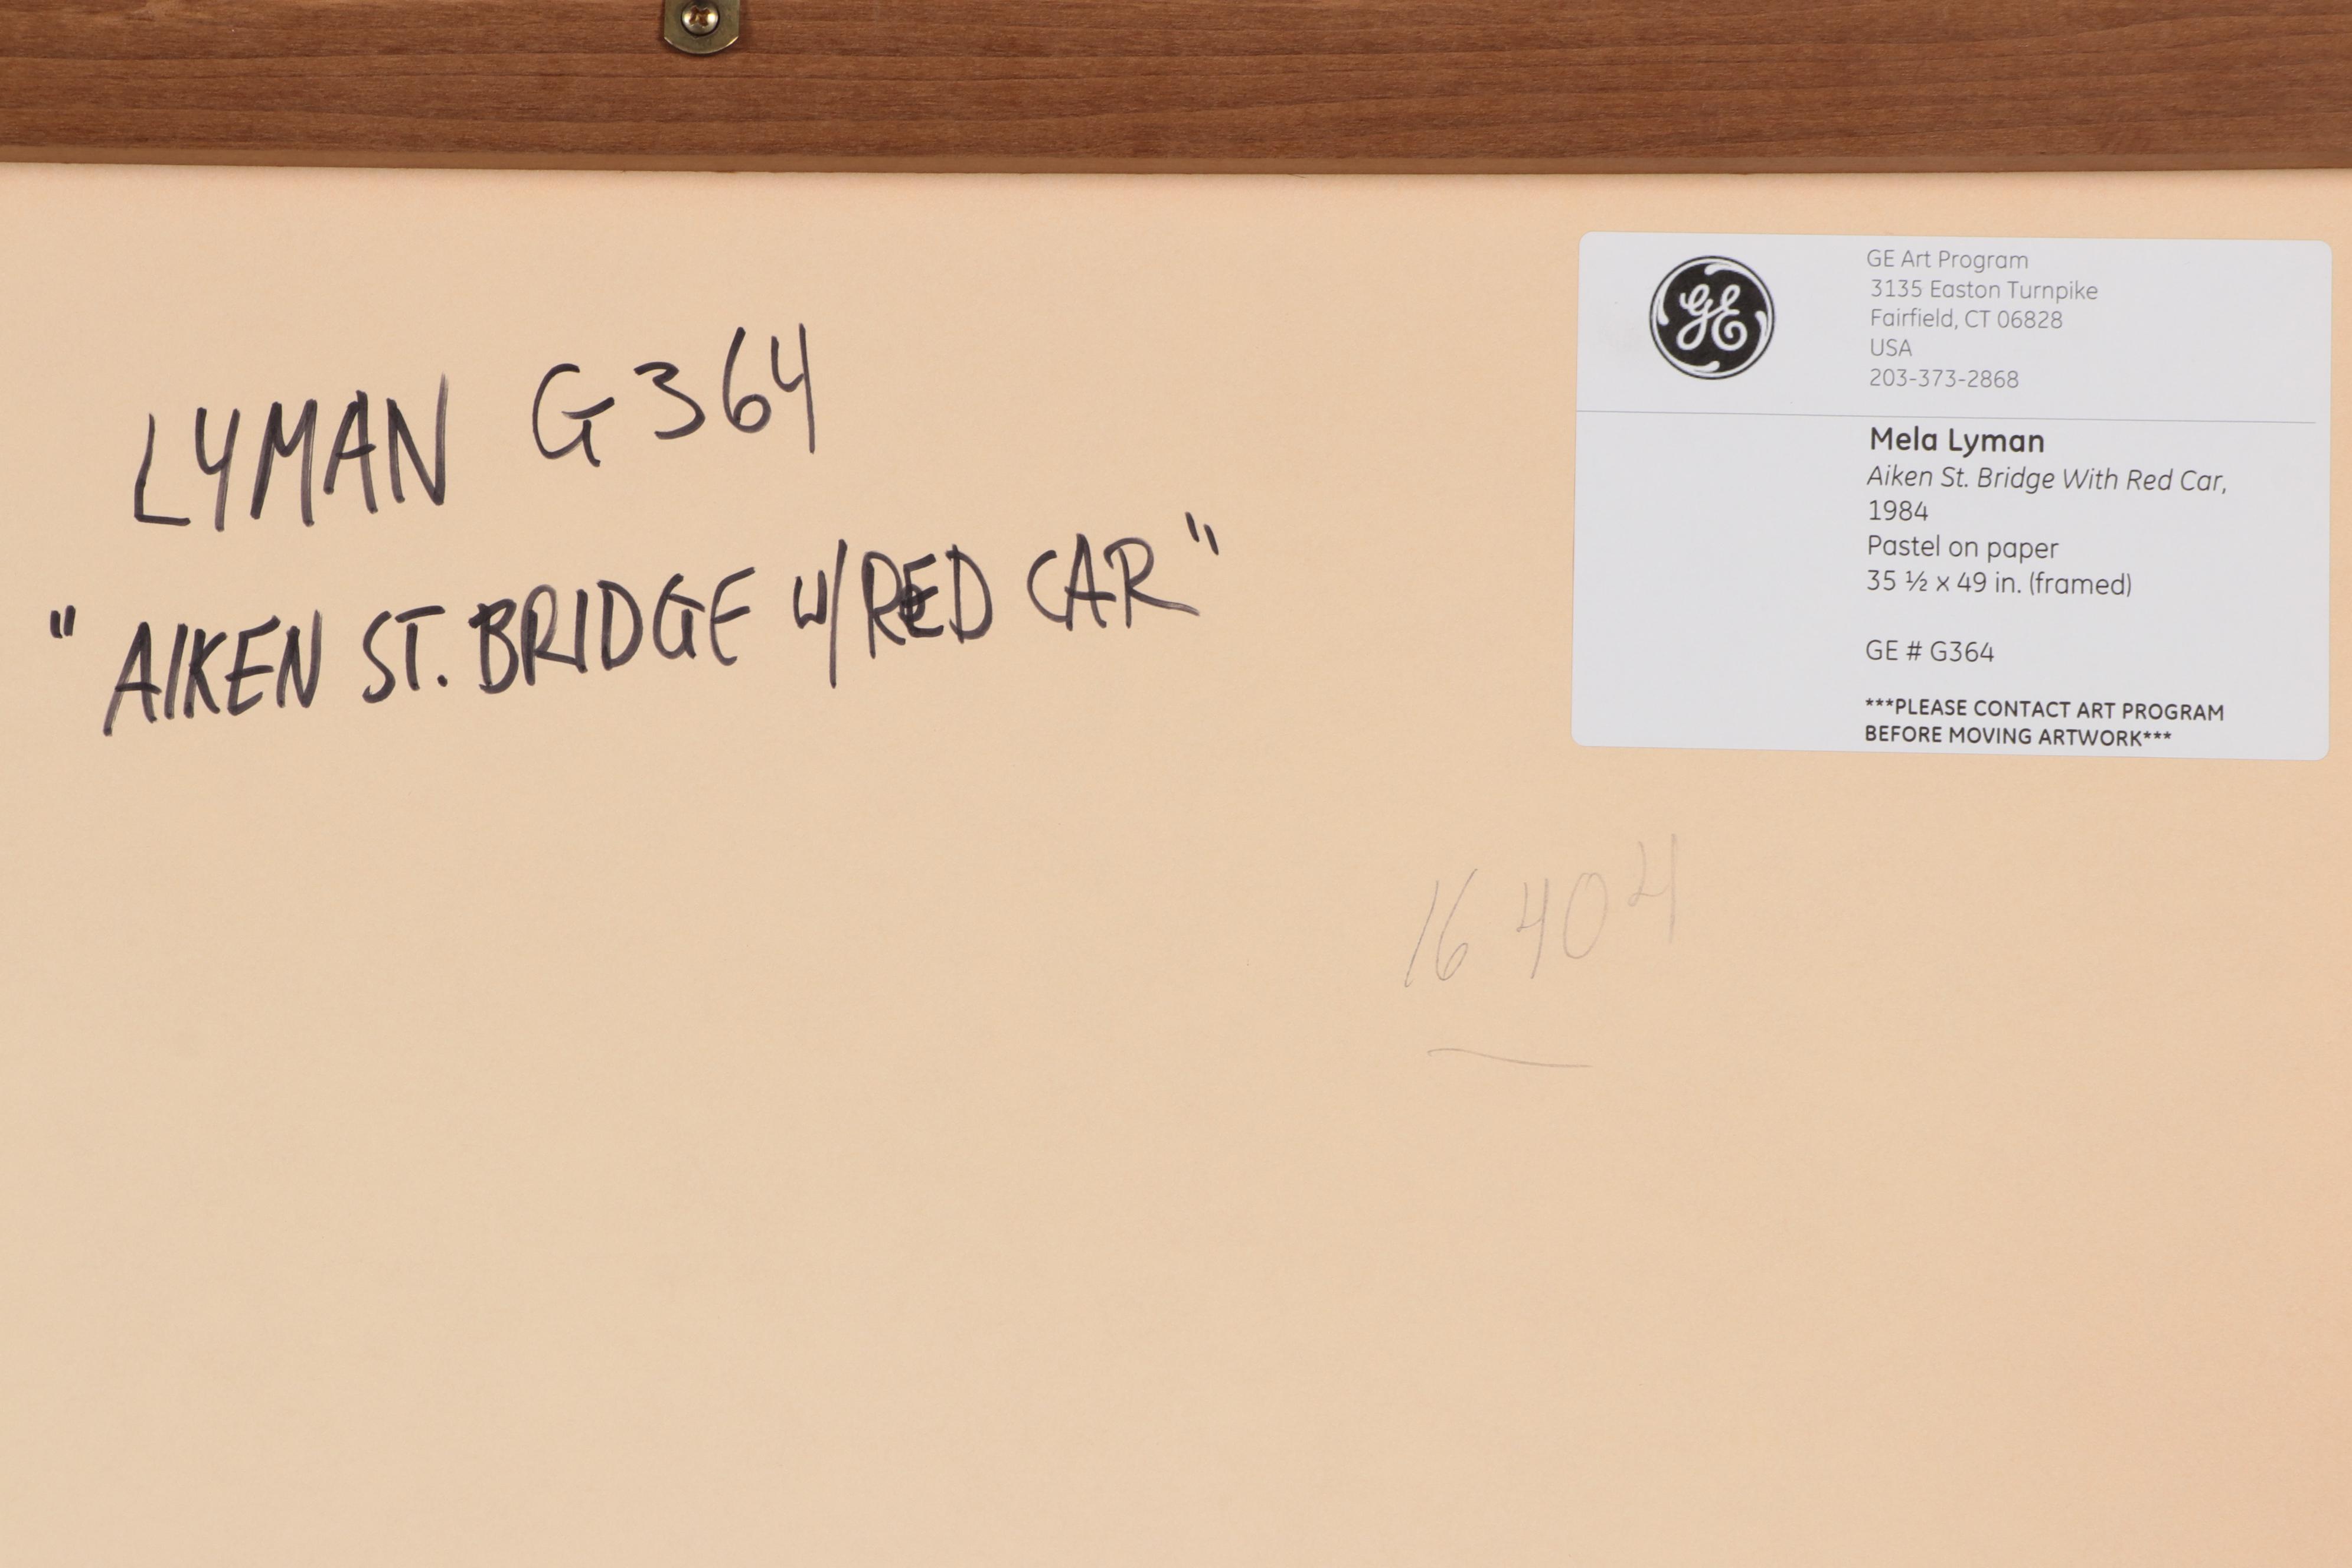 LYMAN G364
"AIKEN ST. BRIDGE W/RED CAR"
GE
GE Art Program
3135 Easton Turnpike
Fairfield, CT 06828
USA
203-373-2868
Mela Lyman
Aiken St. Bridge With Red Car,
1984
Pastel on paper
35 ½ x 49 in. (framed)
GE # G364
***PLEASE CONTACT ART PROGRAM
BEFORE MOVING ARTWORK***
16 404